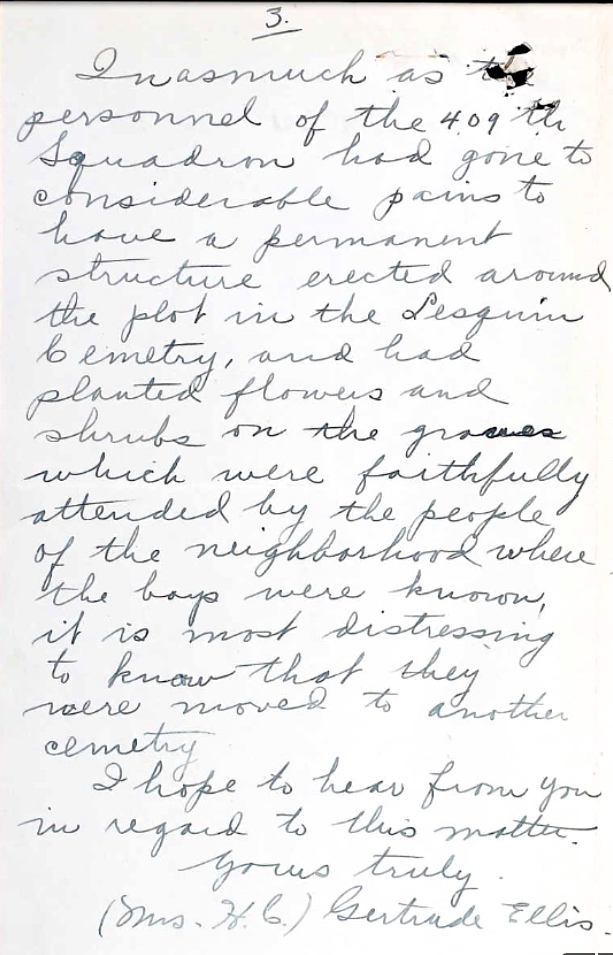 3.
Inasmuch as
personnel of the 409 th
Squadron had gone to
considerable pains to
have a permanent
structure erected around
the plot in the Lesquin
Cemetry, and had
planted flowers and
shrubs on the graves
which were faithfully
attended by the people
of the neighborhood where
the boys were known,
it is most distressing
to know that they
were moved to another
cemetry
I hope to hear from you
in regard to this matter.
Yours truly.
(Mrs. H. C.) Gertrude Ellis.